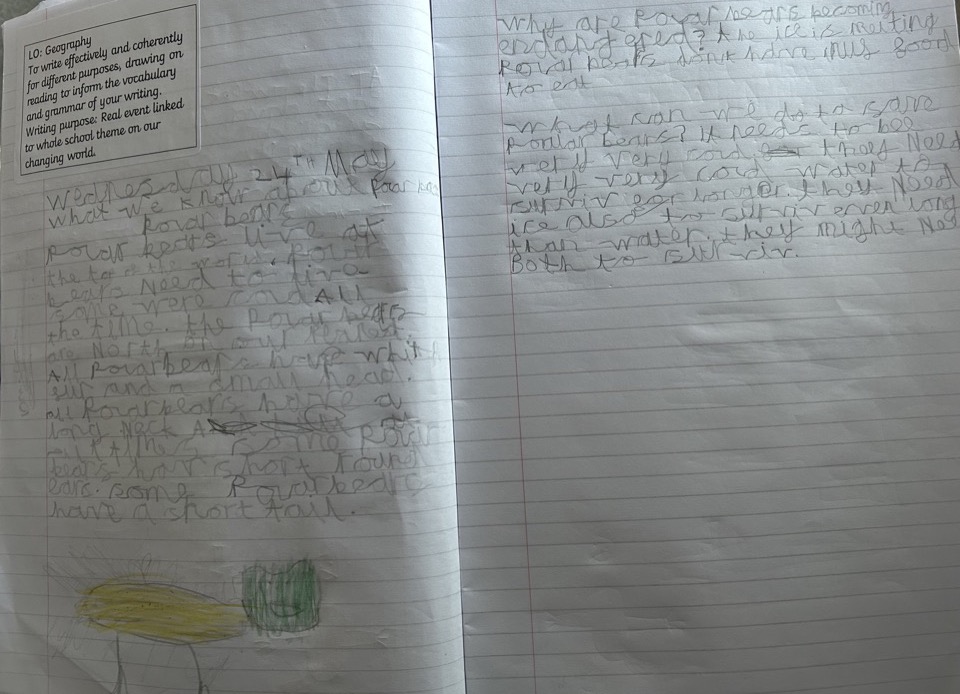 LO: Geography
To write effectively and coherently
for different purposes, drawing on
reading to inform the vocabulary
and grammar of your writing.
Writing purpose: Real event linked
to whole school theme on our
changing world.
Wednesday 24TH May
what we know about
Polar bears
Polar bears live at
the top of the world. Polar
bears Need to live
some were cold All
the time. the Polar bears
are North of our
All Polar bears have whit
fur and a small head.
all Polar bears have a
long Neck
some Polar
bears have short round
ears. some Polar bears
have a short tail.
Why are Polar bears becoming
endangered? the ice is melting
Polar bears don't have food
to eat
What can we do to save
Polar bears? It needs to bee
very very cold they Need
very very cold water to
surviv longer. they Need
ice also to surviv even long
than water. they might Need
Both to surviv.